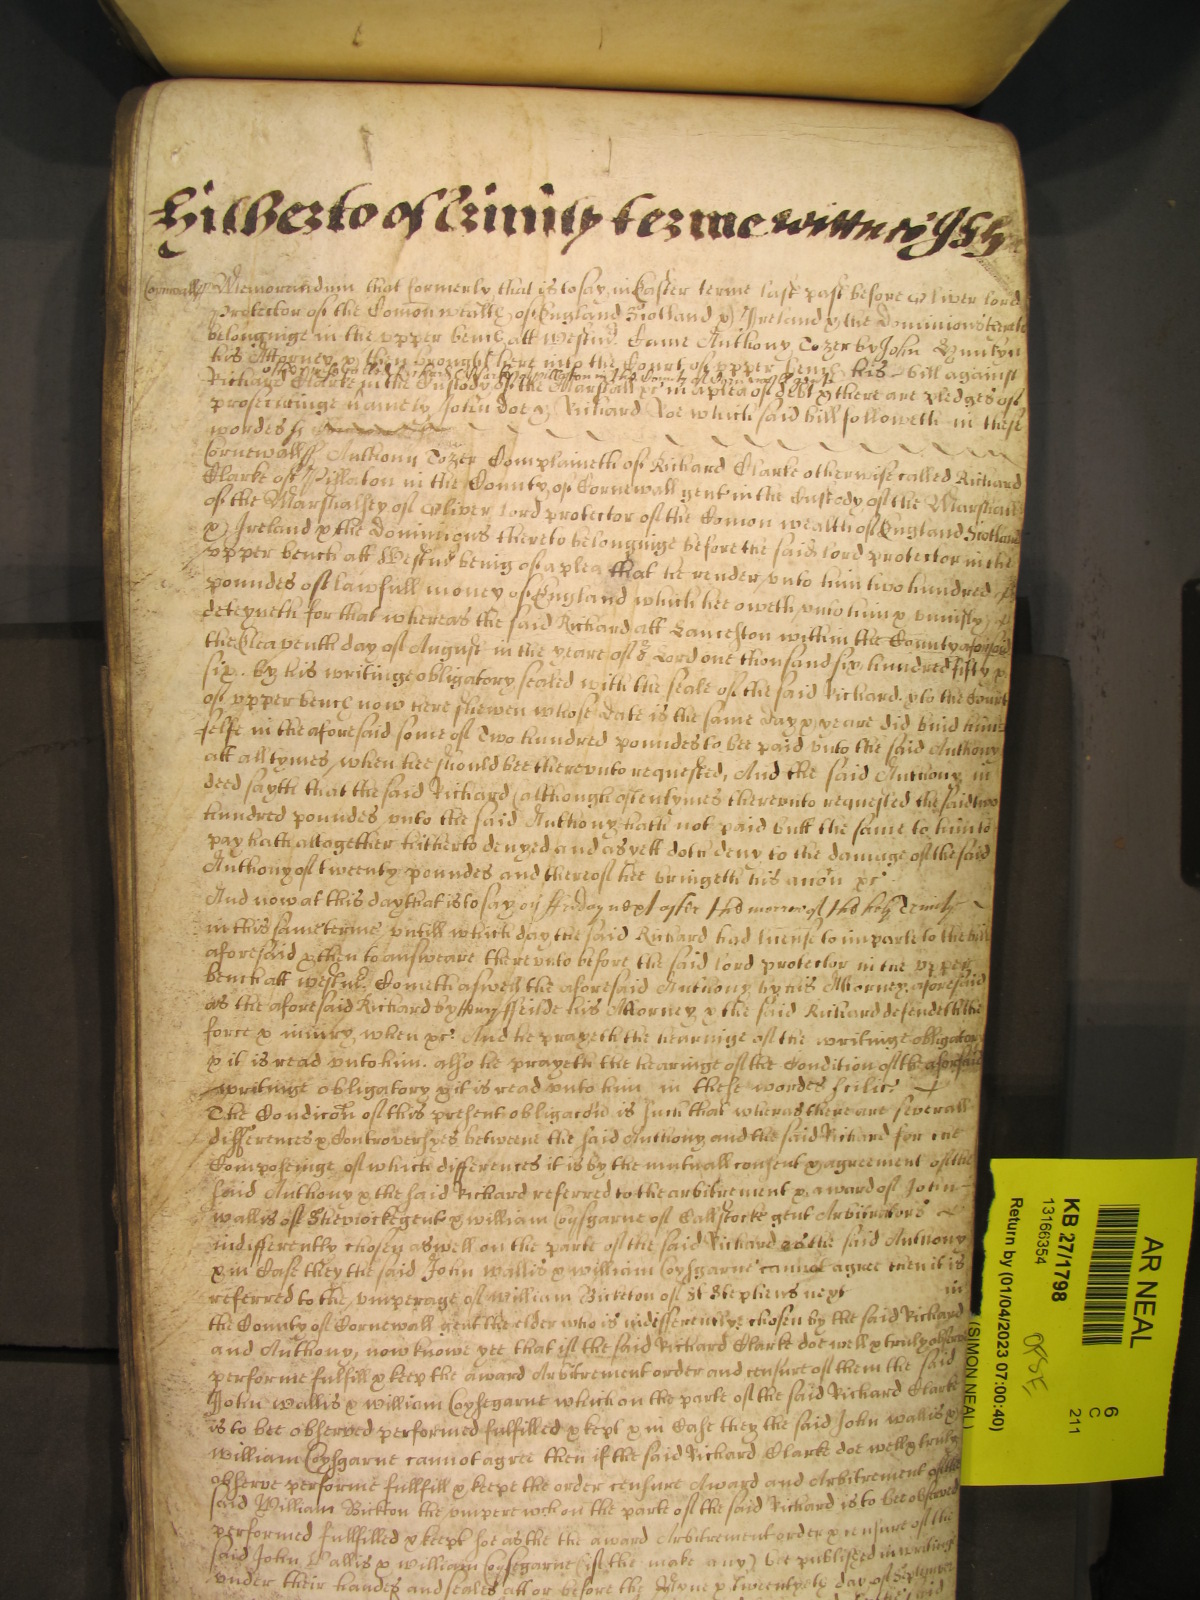 Hitherto of Trinity terme wittnes
Cornwall ss Memorandum that formerly that is to say in Easter terme last past before Oliver lord
Protector of the Comon wealth of England Scotland & Ireland & the Dominions thereto
belonginge in the upper bench att Westmr. Came Anthony Tozer by John
his Attorney & then brought here into the Court of upper bench his bill against
Richard Clarke in the Custody of the Marshall &c in a plea of debt & there are pledges of
prosecutinge namely John Doe & Richard Roe which said bill followeth in these
wordes ss
Cornewall ss Anthony Tozer Complaineth of Richard Clarke otherwise called Richard
Clarke of Pillaton in the County of Cornewall gent in the Custody of the Marshall
of the Marshalsey of Oliver lord protector of the Comon wealth of England Scotland
& Ireland & the Dominions thereto belonginge before the said lord protector in the
upper bench att Westmr being of a plea that he render unto him two hundred
poundes of lawfull money of England which hee oweth unto him & uniustly
deteyneth for that whereas the said Richard att Lanceston within the County aforesaid
the Eleaventh day of August in the yeare of or Lord one thousand six hundred fifty &
six. By his writinge obligatory sealed with the seale of the said Richard. & to the Court
of upper bench now here shewen whose date is the same day & yeare did bind him
selfe in the aforesaid some of Two hundred poundes to bee paid unto the said Anthony
att all tymes, when hee should bee thereunto requested, And the said Anthony in
deed sayth that the said Richard (although oftentymes thereunto requested the said two
hundred poundes unto the said Anthony hath not paid butt the same to him to
pay hath altogether hitherto denyed and as yett doth deny to the damage of the said
Anthony of twenty poundes and thereof hee bringeth his accon &c
And now at this day that is to say on Friday next after the morrow of the holy Trinity
in this same terme untill which day the said Richard had license to imparle to the bill
aforesaid & then to answeare thereunto before the said lord protector in the upper
bench att Westmr. Cometh aswell the aforesaid Anthony by his Attorney aforesaid
as the aforesaid Richard by ffeilde his Attorney & the said Richard defendeth the
force & iniury when &c And he prayeth the hearinge of the writinge obligatory
& it is read unto him. also he prayeth the hearinge of the Condition of the aforesaid
writinge obligatory & it is read unto him in these wordes scilict
The Condicon of this present obligacon is such that wheras there are severall
differences & Controversyes betweene the said Anthony and the said Richard for the
Composeinge of which differences it is by the mutuall consent & agreement of the
said Anthony & the said Richard referred to the arbitrement & award of John
Wallis of Sheviocke gent & William Coysgarne of Callstocke gent Arbitrators
indifferently chosen aswell on the parte of the said Richard as the said Anthony
& in Case they the said John Wallis & William Coysgarne cannot agree then it is
referred to the umperage of William Bicketon of St Stephens next in
the County of Cornewall gent the elder who is indifferently chosen by the said Richard
and Anthony, now knowe yee that if the said Richard Clarke doe well & truly observe
performe fulfill & keep the award Arbitrement order and censure of them the said
John Wallis & William Coysegarne which on the parte of the said Richard Clarke
is to bee observed performed fulfilled & kept & in Case they the said John Wallis &
William Coysgarne cannot agree then if the said Richard Clarke doe well & truly
observe performe fullfill & keepe the order censure Award and Arbitrement of the
said William Bickton the umpere wch on the parte of the said Richard is to bee observed
performed fullfilled & kept soe as the the award Arbitrement order & censure of the
said John Wallis & William Coysegarne (if the make any) bee published in writinge
under their handes and seales att or before the Nyne & twentyeth day of September
AR NEAL
KB 27/1798
13166354
Return by (01/04/2023 07:00:40)
(SIMON NEAL)
6
C
211